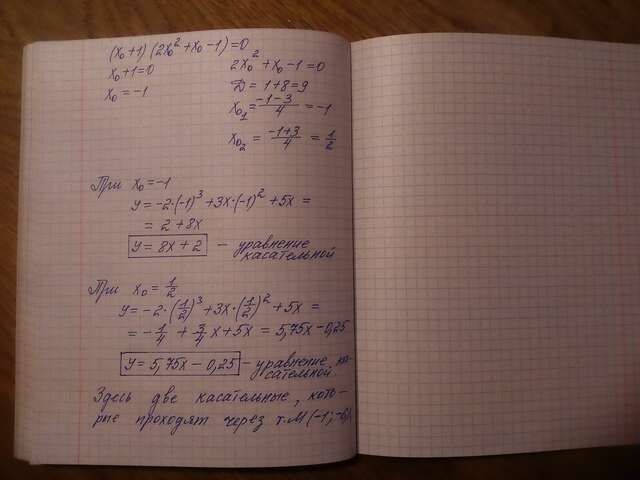 (x₀+1)(2x₀²+x₀-1)=0
x₀+1=0
x₀=-1
2x₀²+x₀-1=0
D=1+8=9
x₀₁=(-1-3)/4=-1
x₀₂=(-1+3)/4=1/2
При x₀=-1
y=-2·(-1)³+3x·(-1)²+5x=
=2+8x
y=8x+2 - уравнение
касательной
При x₀=1/2
y=-2·(1/2)³+3x·(1/2)²+5x=
=-1/4+3/4x+5x=5,75x-0,25
y=5,75x-0,25 - уравнение ка-
сательной.
Здесь две касательные, кото-
рые проходят через т.М(-1;-6).